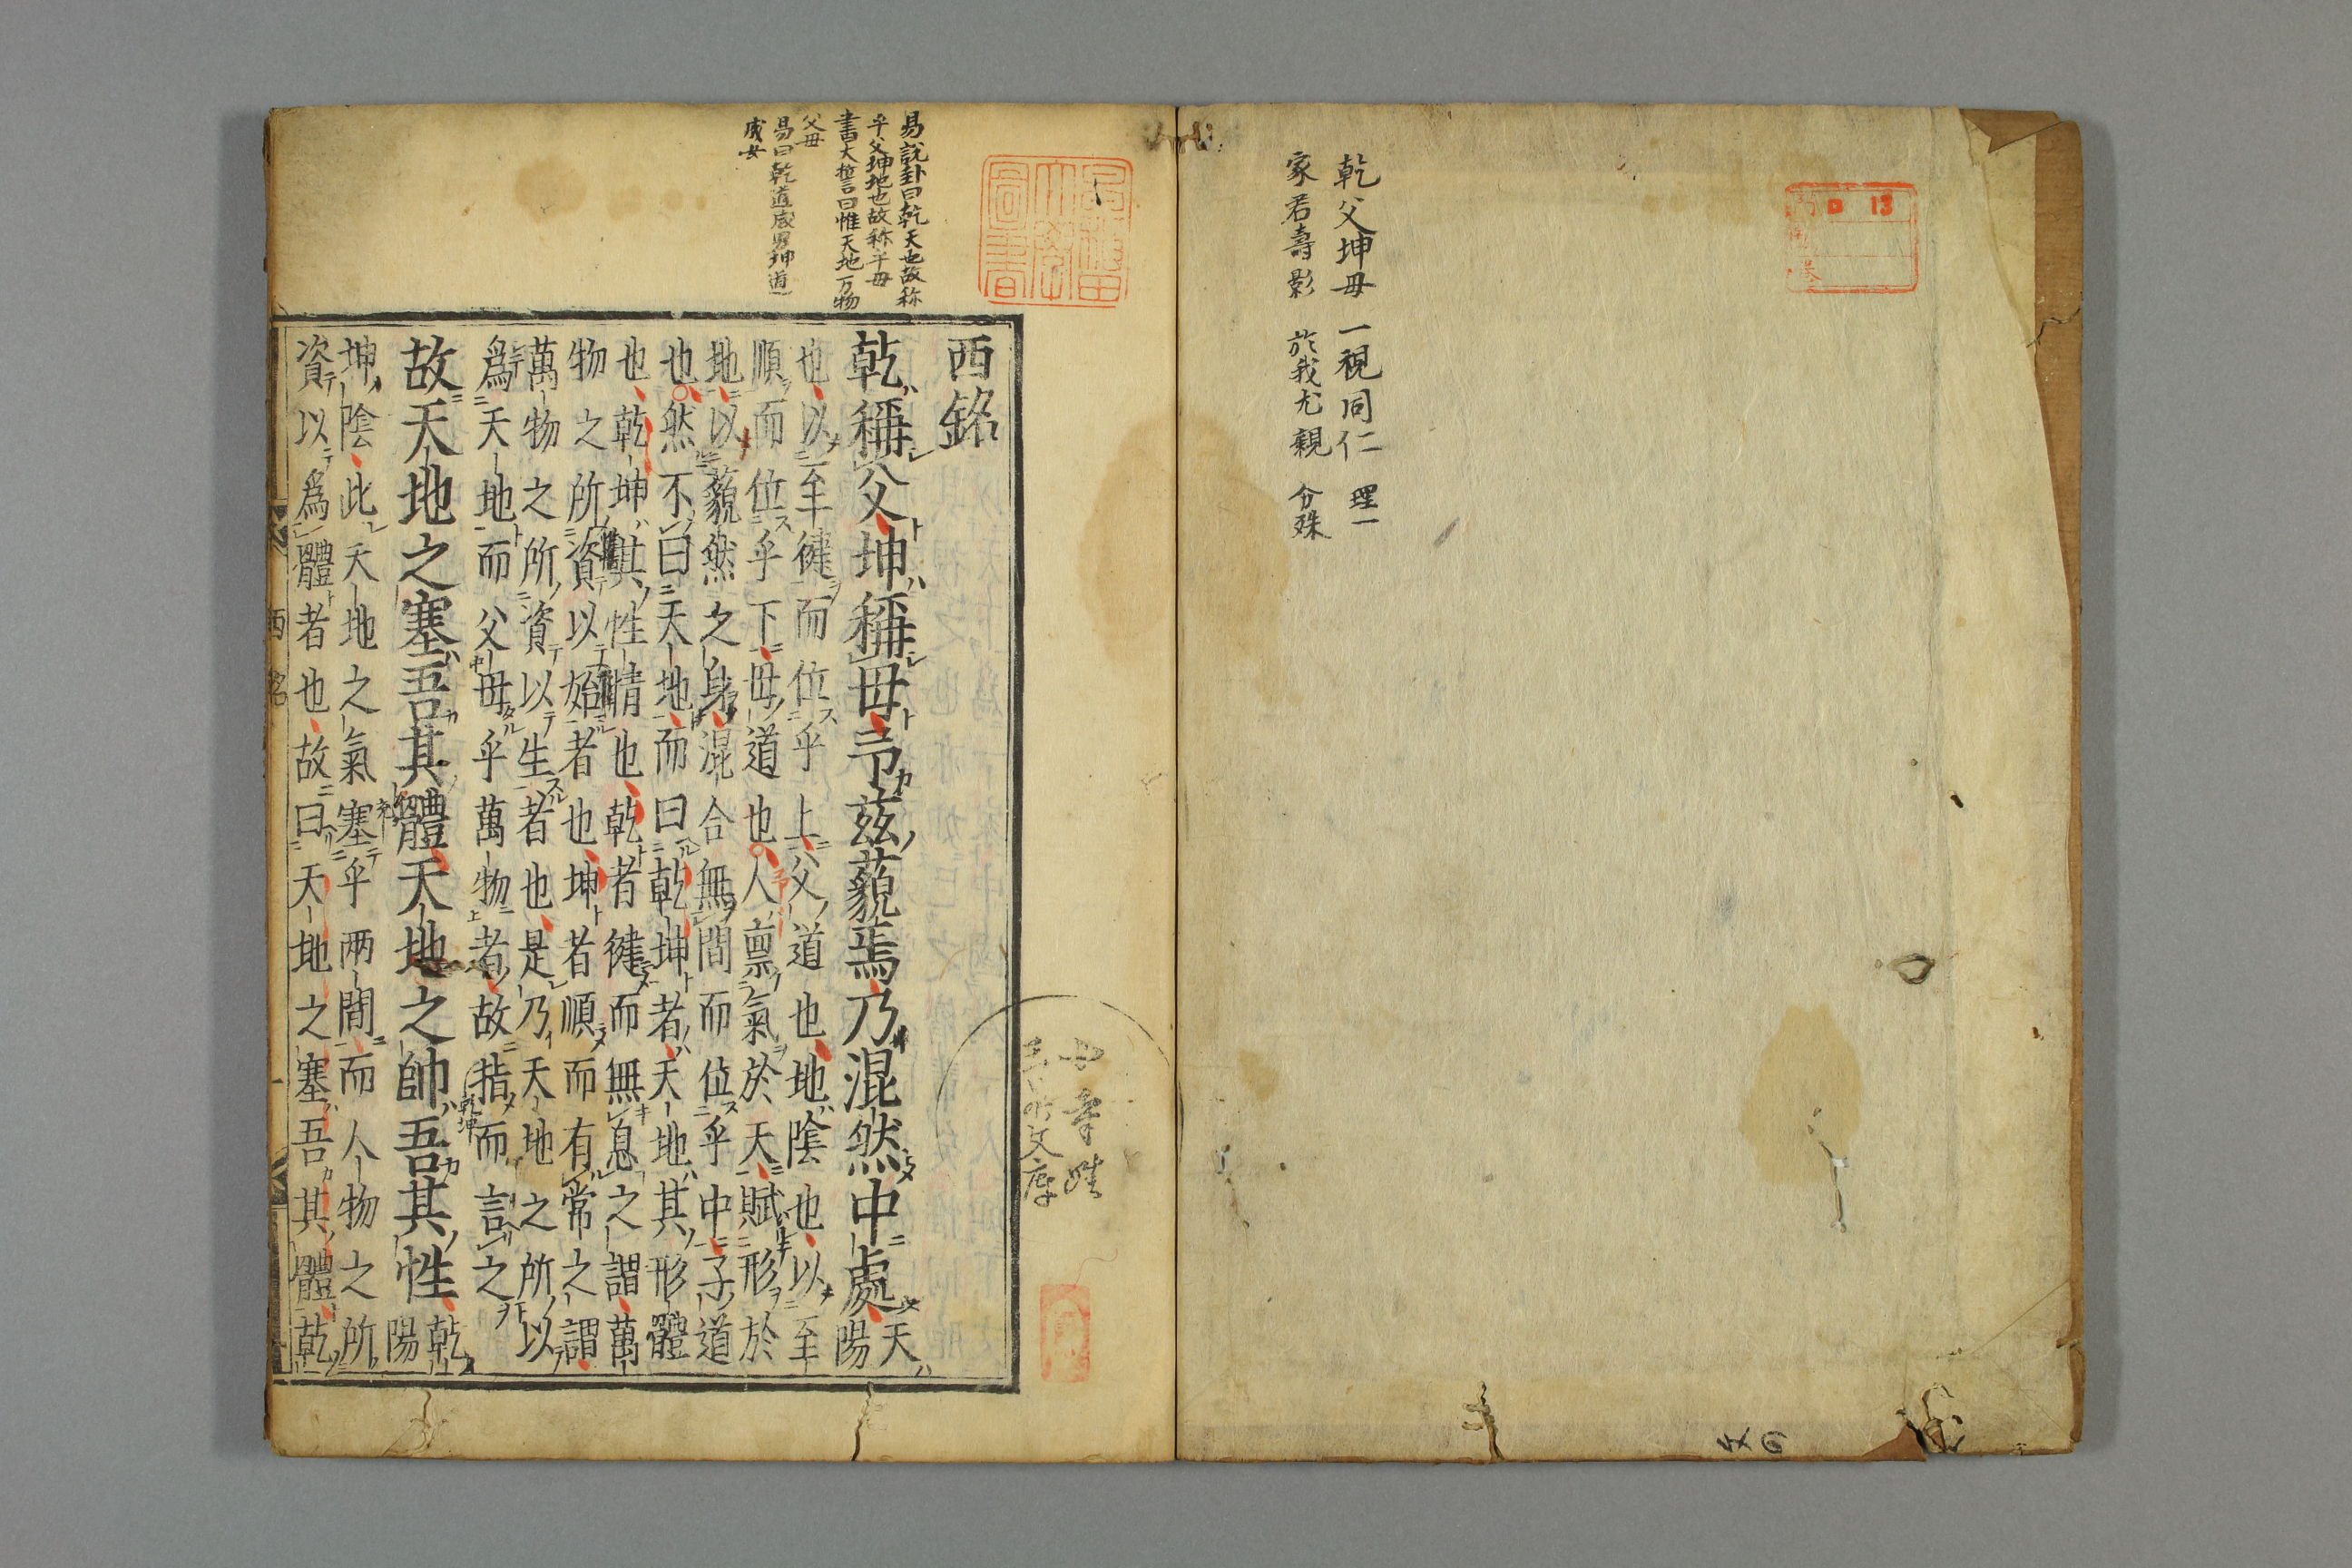 乾父坤母 一視同仁 理一
家君壽影 於我尤親 分殊
13
易說卦曰乾天也故称
乎父坤地也故称乎母
書大誓曰惟天地万物
父母
易曰乾道成男坤道
成女
西銘
乾稱父坤稱母予茲藐焉乃混然中處天
陽
也以至健而位乎上父道也地陰也以至
順而位乎下母道也人禀氣於天賦形於
地以藐然之身混合無間而位乎中子道
也然不曰天地而曰乾坤者天地其形體
也乾坤其性情也乾者健而無息之謂萬
物之所資以始者也坤者順而有常之謂
萬物之所資以生者也是乃天地之所以
爲天地而父母乎萬物者故指而言之
乾坤
故天地之塞吾其體天地之帥吾其性乾
陽
坤陰此天地之氣塞乎两間而人物之所
資以爲體者也故曰天地之塞吾其體乾
西銘
一
文庫